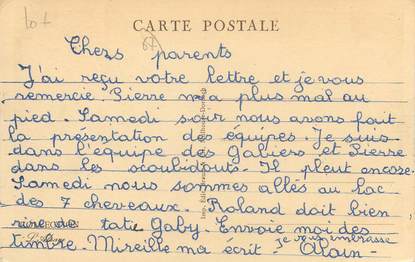 lot
CARTE POSTALE
67
Chers parents
J'ai reçu votre lettre et je vous
remercie. Pierre m'a plus mal au
pied. Samedi soir nous avons fait
la présentation des équipes. Je suis
dans l'équipe des Gabiers et Pierre
dans les stoubidouts. Il pleut encore.
Samedi nous sommes allés au lac
des 7 cheveaux. Roland doit bien
rire de tatie Gaby. Envoie moi des
timbre. Mireille ma écrit - je vous embrasse
Alain -